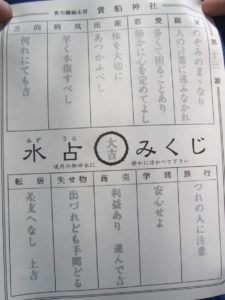 貴布禰総本宮 貴船神社
第十二番
願望
のぞみのまゝなり
人の言葉に迷ふなかれ
恋愛
多くて困ることあり
静かに心を定めてよし
出産
体を大切に
あつかふべし
病気
早く本復すべし
方向
何れにても吉
みず うら
水占 大吉 みくじ
境内の御神水に 静かに浮かべて下さい
旅行
つれの人に注意
学問
安心せよ
商売
利益あり 進んで吉
失せ物
出づれども手間どる
転居
さしつかへなし 上吉